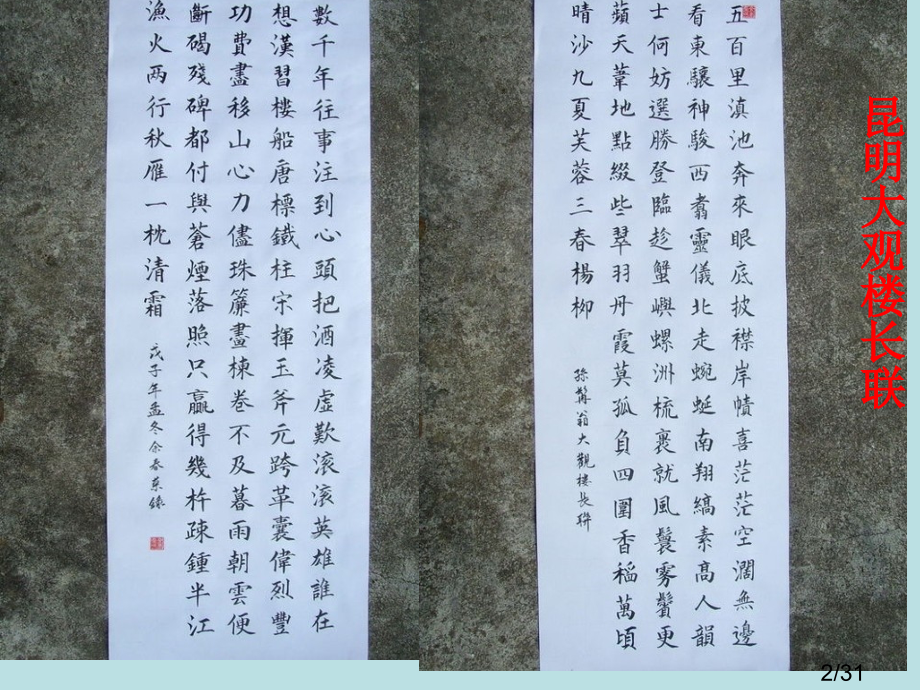 昆明大观楼长联
五百里滇池奔來眼底披襟岸幘喜茫茫空濶無邊
看東驤神駿西翥靈儀北走蜿蜒南翔縞素高人韻
士何妨選勝登臨趁蟹嶼螺洲梳裹就風鬟霧鬢更
蘋天葦地點綴些翠羽丹霞莫孤負四圍香稻萬頃
晴沙九夏芙蓉三春楊柳
孫髯翁大觀樓長聯
數千年往事注到心頭把酒凌虛歎滚滚英雄誰在
想漢習樓船唐標鐵柱宋揮玉斧元跨革囊偉烈豐
功費盡移山心力儘珠簾畫棟卷不及暮雨朝雲便
斷碣殘碑都付與蒼煙落照只贏得幾杵疎鍾半江
漁火两行秋雁一枕清霜
戊子年孟冬余春錄
2/31